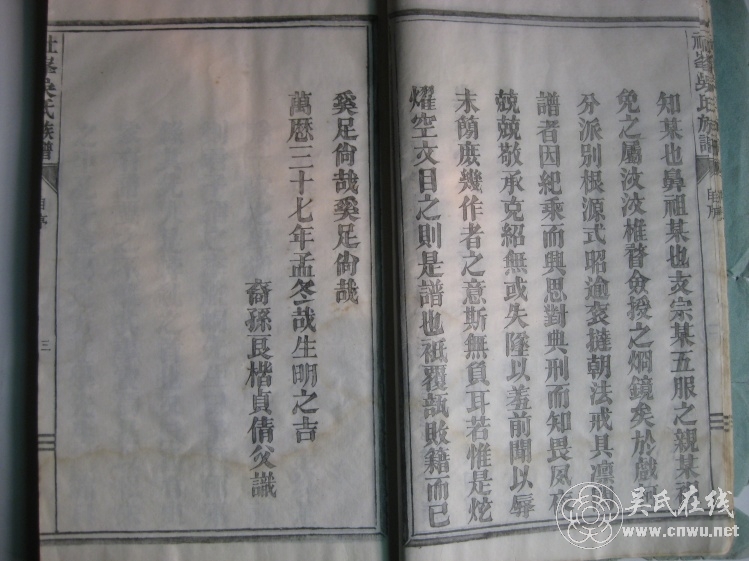 吳氏族譜
自序
知某也鼻祖某也支宗某五服之親某
免之屬汶汶椎瞀僉授之烱鏡矣於戲
分派別根源式昭逾衮撻朝法戒具凛
譜者因紀乘而興思對典刑而知畏夙夜
兢兢敬承克紹無或失墜以羞前聞以辱
末簡庶幾作者之意斯無負耳若惟是炫
燿空文目之則是譜也祗覆瓿敗籍而已
奚足尙哉奚足尙哉
萬曆三十七年孟冬哉生明之吉
裔孫良楷貞倩父識
吳氏族譜
自序
三
吴氏在线
www.cnwu.net